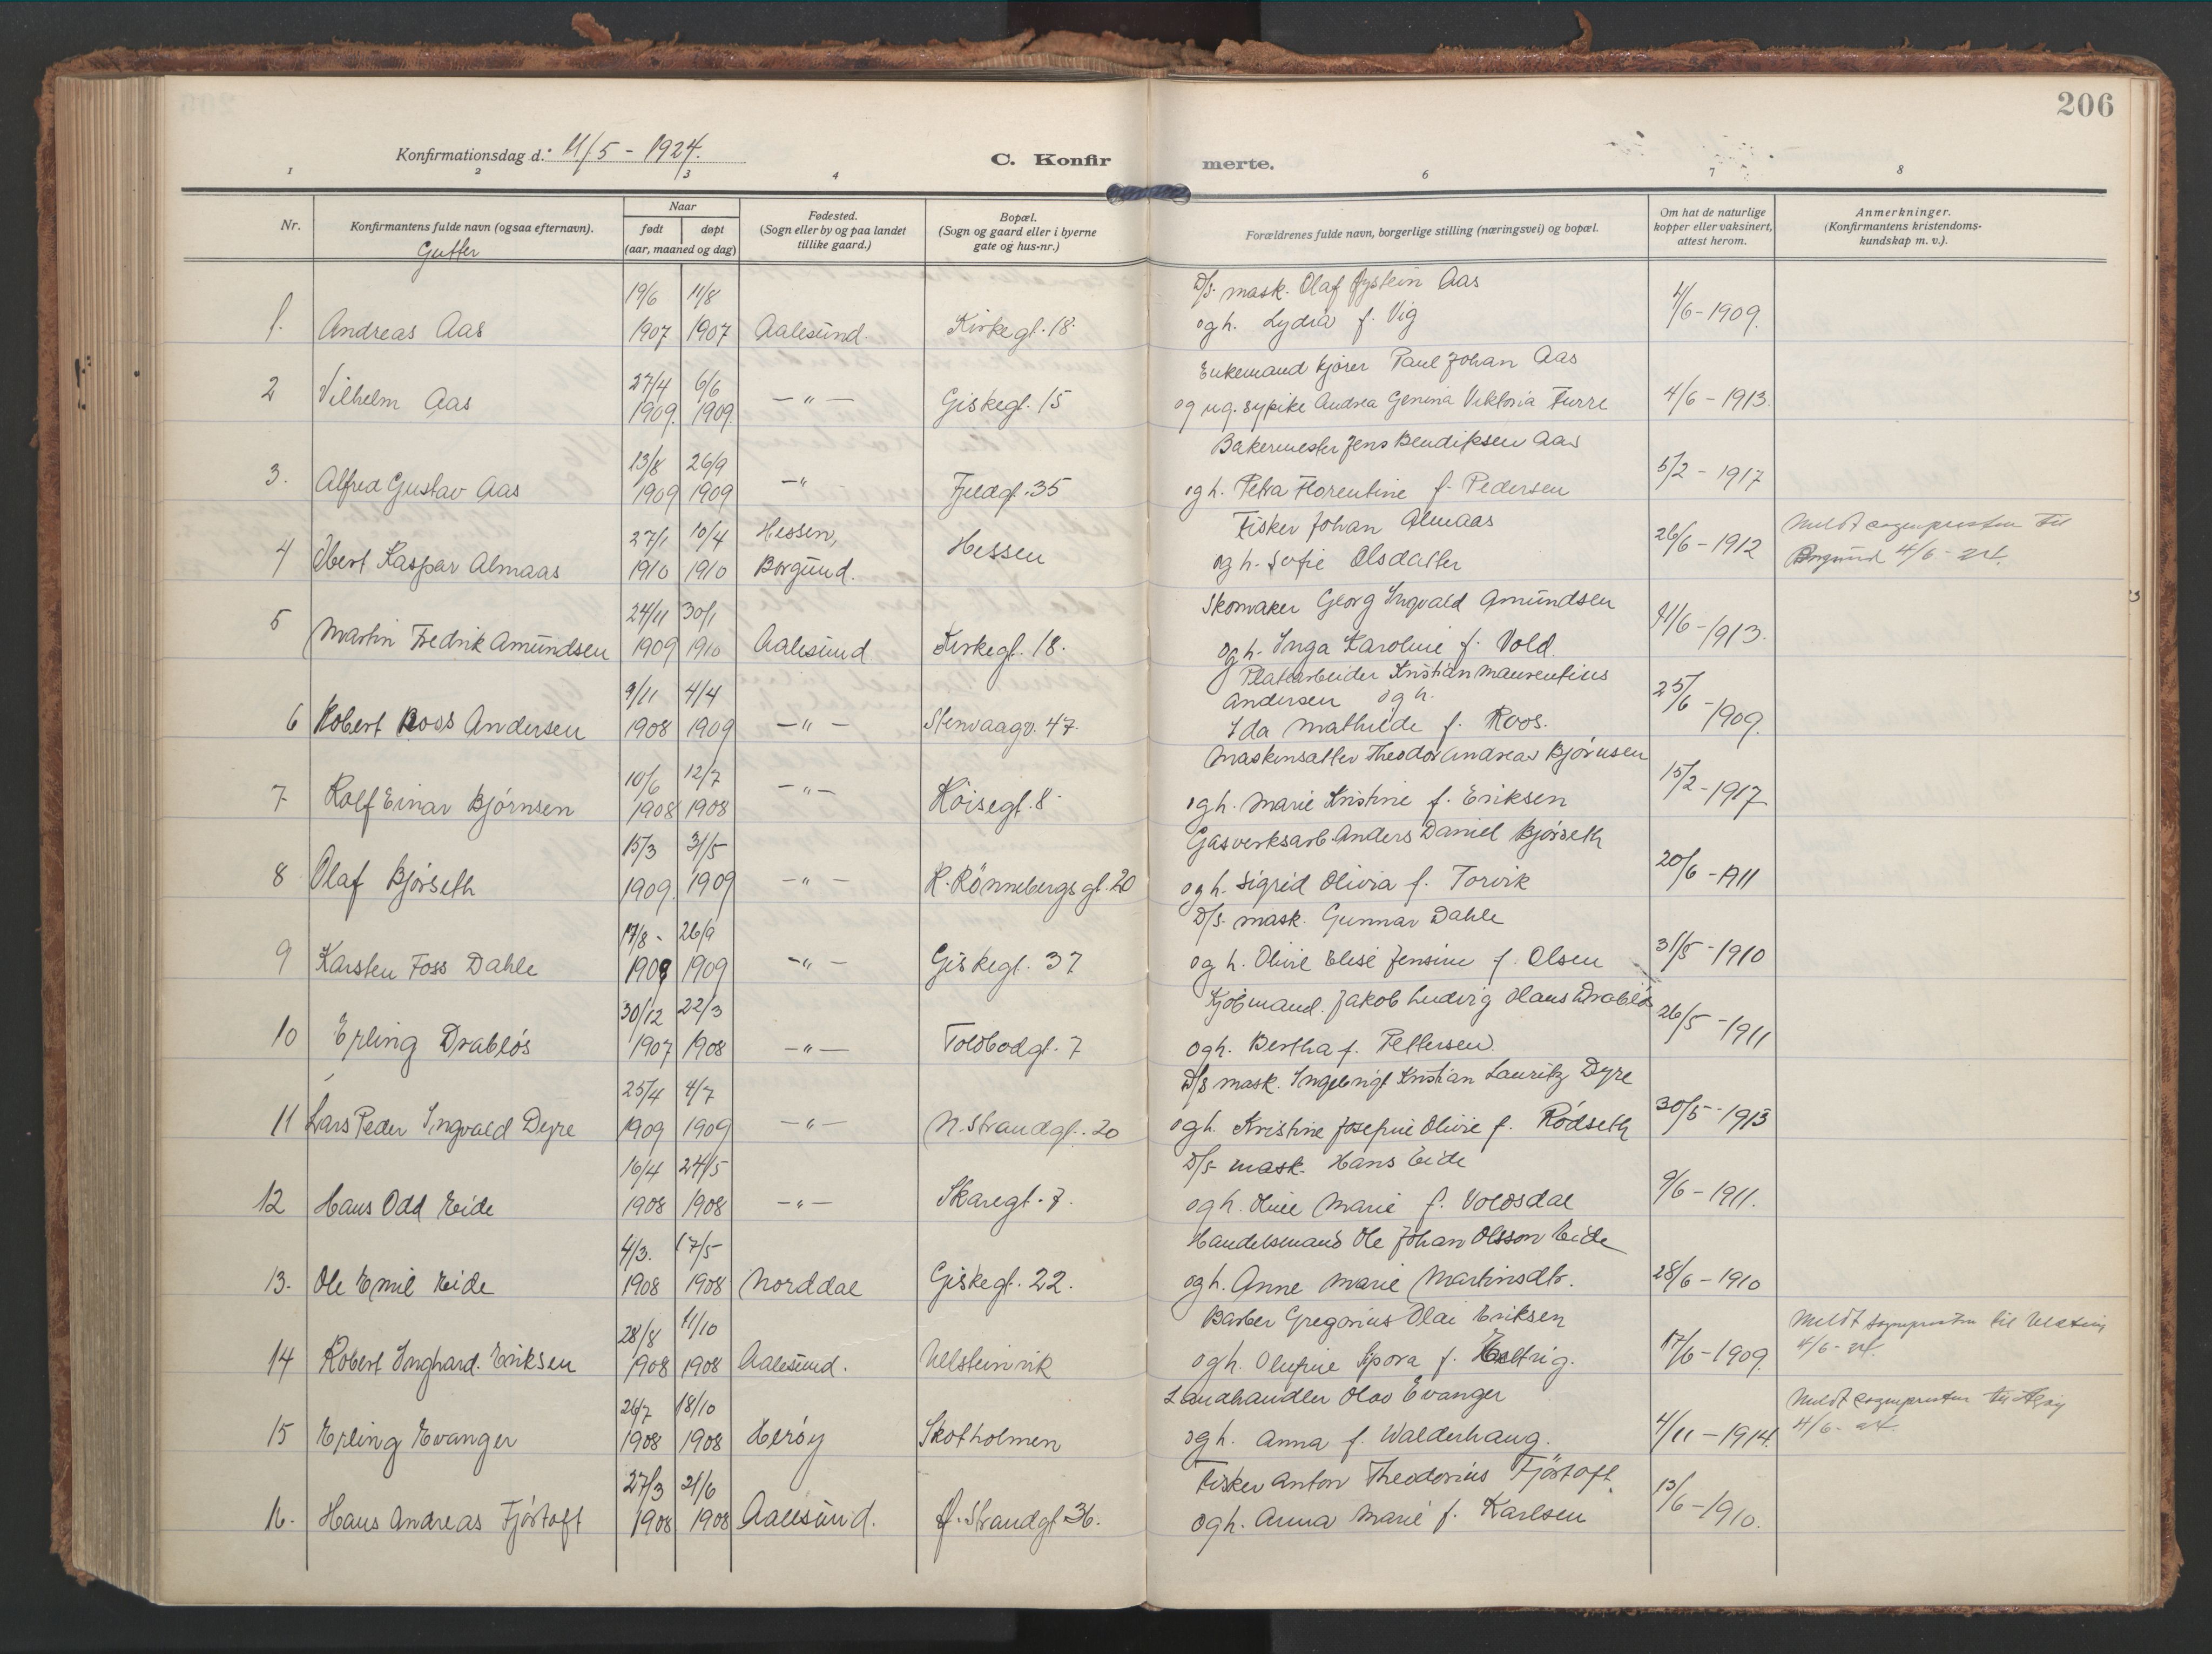 206
Konfirmationsdag d. 11/5 - 1924.
C. Konfirmerte.
1 2 3 4 6 7 8
Nr.
Konfirmantens fulde navn (ogsaa efternavn).
Gutter
Naar
født døpt
(aar, maaned og dag)
Fødested.
(Sogn eller by og paa landet
tillike gaard.)
Bopæl.
(Sogn og gaard eller i byerne
gate og hus-nr.)
Forældrenes fulde navn, borgerlige stilling (næringsvei) og bopæl.
Om hat de naturlige
kopper eller vaksinert,
attest herom.
Anmerkninger.
(Konfirmantens kristendoms-
kundskap m. v.).
19/6 11/8 D/s. mask. Olaf Øystein Aas
1. Andreas Aas 1907 1907 Aalesund Kirkegt. 18. og h. Lydia f. Vig 4/6-1909.
27/4 6/6 Enkemand kjører Paul Johan Aas
2 Vilhelm Aas 1909. 1909. -"- Giskegt. 15 og ug. sypike Andrea Genina Viktoria Furre 4/6-1913.
13/8 26/9 Bakermester Jens Bendiksen Aas
3. Alfred Gustav Aas 1909 1909 -"- Fjeldgt. 35 og h. Petra Florentine f. Pedersen 5/2-1917
27/1 10/4 Hessen, Fisker Johan Almaas Meldt sognepresten til
4 Obert Kaspar Almaas 1910 1910 Borgund. Hessen og h. Sofie Olsdatter 26/6-1912 Borgund 4/6-24.
24/11 30/1 Skomaker Georg Ingvald Amundsen
5 Martin Fredrik Amundsen 1909 1910 Aalesund Kirkegt. 18. og h. Inga Karoline f. Vold. 11/6-1913.
9/11 4/4 Platearbeider Kristian Maurentius
Andersen og h.
6 Robert Roos Andersen 1908 1909 -"- Stenvaagv. 47. Ida Mathilde f. Roos. 25/6-1909.
10/6 12/7 Maskinsatter Theodor Andreas Bjørnsen
7 Rolf Einar Bjørnsen 1908 1908 -"- Køisegt. 8. og h. Marie Kristine f. Eriksen 15/2-1917
15/3 31/5 Gasverksarb. Anders Daniel Bjørseth
8 Olaf Bjørseth 1909. 1909 -"- R. Rønnebergs gt. 20 og h. Sigrid Olivia f. Torvik 20/6-1911
17/8- 26/9 D/s. mask. Gunnar Dahle
9 Karsten Foss Dahle 1909 1909 -"- Giskegt. 37 og h. Olivie Elise Jensine f. Olsen 31/5-1910
30/12 22/3 Kjøbmand. Jakob Ludvig Hans Drabløs
10 Erling Drabløs 1907 1908 -"- Toldbodgt. 7 og h. Bertha f. Pettersen. 26/5-1911
25/4 4/7 D/s mask. Ingebrigt Kristian Lauritz Dyre
11 Lars Peder Ingvald Dyre 1909 1909 -"- N. Strandgt. 20 og h. Kristine Josefine Olivie f. Rødseth 30/5-1913
16/4 24/5 D/s- mask. Hans Eide
12 Hans Odd Eide 1908 1908 -"- Skaregt. 7. og h. Oline Marie f. Voldsdal 9/6-1911.
4/3. 17/5 Handelsmand Ole Johan Olsson Eide
13. Ole Emil Eide 1908 1908 Norddal Giskegt. 22. og h. Anne Marie Martinsdtr. 28/6-1910
28/8 11/10 Barber Gregorius Olai Eriksen Meldt sognepresten til Ulstein
14 Robert Inghard. Eriksen 1908 1908 Aalesund. Ulsteinvik og h. Olufine f. 17/6-1909. 4/6-24.
26/7 18/10 Landhandler Olav Evanger Meldt sognepresten til Herøy
15 Erling Evanger 1908 1908 Herøy Skotholmen og h. Anna f. Walderhaug. 4/11-1914. 4/6-24.
27/3 21/6 Fisker Anton Theodorius Fjørtoft.
16. Hans Andreas Fjørtoft 1908 1908 Aalesund. Ø. Strandgt 36. og h. Anna Marie f. Karlsen 13/6-1910.